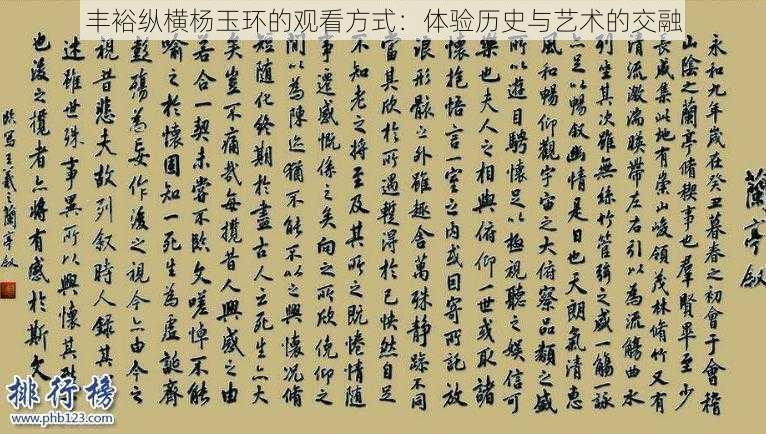 丰裕纵横杨玉环的观看方式：体验历史与艺术的交融
蘭亭敘
永和九年歲在癸丑暮春之初會于會稽
山陰之蘭亭脩稧事也羣賢畢至少
長咸集此地有崇山峻領茂林脩竹又有
清流激湍暎帶左右引以為流觴曲水
列坐其次雖無絲竹管弦之盛一觴一詠
亦足以暢敘幽情是日也天朗氣清惠
風和暢仰觀宇宙之大俯察品類之盛
所以遊目騁懷足以極視聽之娛信可
樂也夫人之相與俯仰一世或取諸
懷抱悟言一室之內或因寄所託放
浪形骸之外雖趣舍萬殊靜躁不同
當其欣於所遇蹔得於己怏然自足
不知老之將至及其所之既惓情隨
事遷感慨係之矣向之所欣俛仰之
間以為陳迹猶不能不以之興懷況脩
短隨化終期於盡古人云死生亦大
矣豈不痛哉每攬昔人興感之由
若合一契未嘗不臨文嗟悼不能
喻之於懷固知一死生為虛誕齊
彭殤為妄作後之視今亦由今之
視昔悲夫故列敘時人錄其
述雖世殊事異所以興懷其
也後之攬者亦將有感於斯文
臨寫王羲之蘭亭敘
排行榜
www.phb123.com